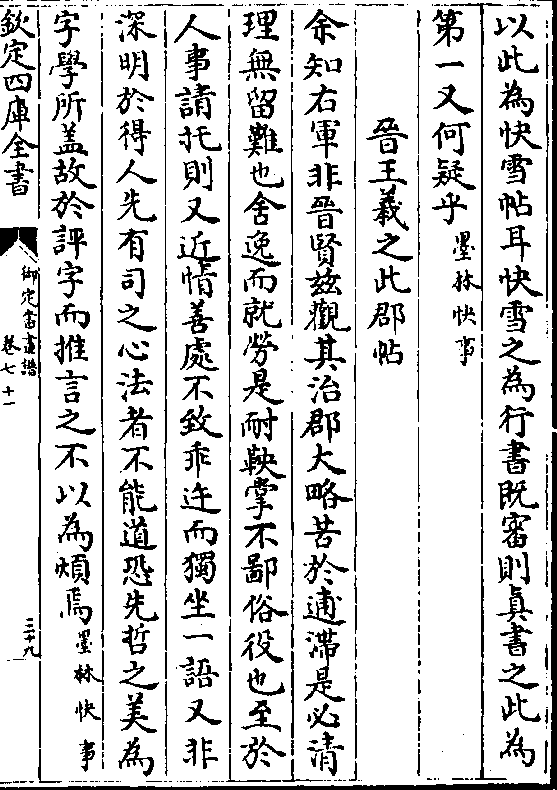 以此為快雪帖耳快雪之為行書既審則真書之此為
第一又何疑乎墨林快事
晉王羲之此郡帖
余知右軍非晉賢茲觀其治郡大略苦於逋滯是必清
理無留難也舍逸而就勞是耐鞅掌不鄙俗役也至於
人事請托則又近情善處不致乖迕而獨坐一語又非
深明於得人先有司之心法者不能道恐先哲之美為
字學所蓋故於評字而推言之不以為煩焉墨林快事
欽定四庫全書
御定書畫譜
卷七十一
三十九